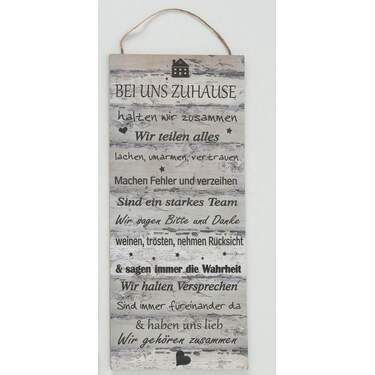 BEI UNS ZUHAUSE
halten wir zusammen
Wir teilen alles
lachen, umarmen, vertrauen
Machen Fehler und verzeihen
Sind ein starkes Team
Wir sagen Bitte und Danke
weinen, trösten, nehmen Rücksicht
& sagen immer die Wahrheit
Wir halten Versprechen
Sind immer füreinander da
& haben uns lieb
Wir gehören zusammen